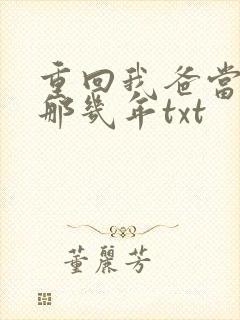 重回我爸当
那几年txt
董麗芳